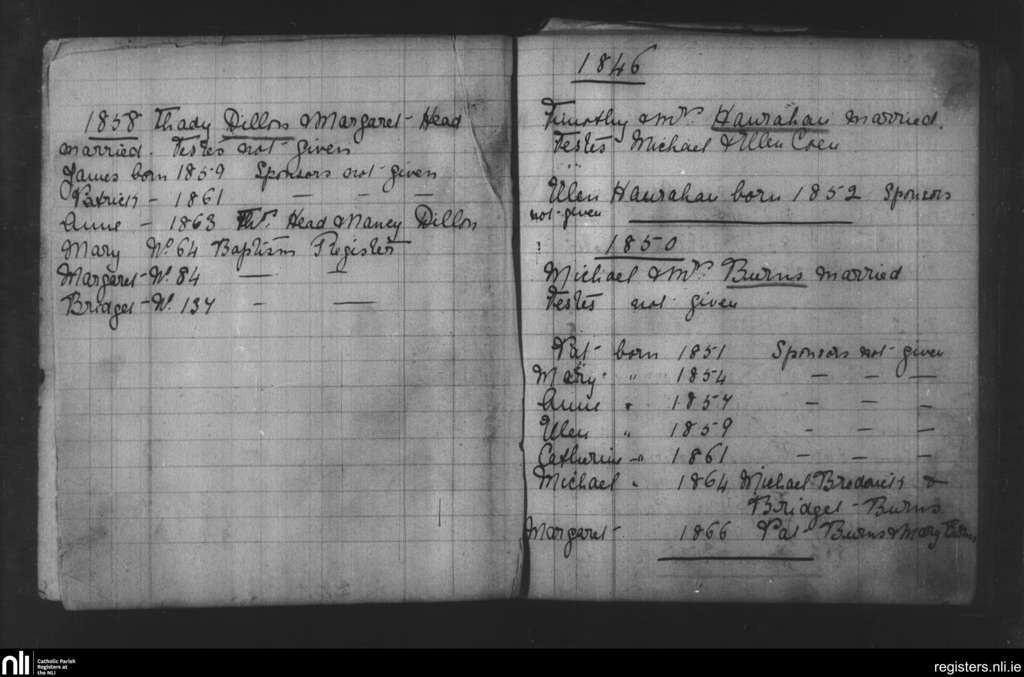 1858 Thady Dillon & Margaret Head
married. Testes not given
James born 1859 Sponsors not given
Patrick - 1861 — — —
Anne - 1863 Thos. Head & Nancy Dillon
Mary No. 64 Baptism Register
Margaret - No. 84 — —
Bridget - No. 137 - —
1846
Timothy & Mrs. Hanrahan married.
Testes Michael & Ellen Coen
Ellen Hanrahan born 1852 Sponsors
not given
1850
Michael & Mrs. Burns married
Testes not given
Pat born 1851 Sponsors not given
Mary " 1854 — — —
Anne " 1857 - - -
Ellen " 1859 - - -
Catherine " 1861 - - -
Michael " 1864 Michael Broderick &
Bridget Burns
Margaret 1866 Pat Burns & Mary Burns
nli
Catholic Parish
Registers at
the NLI
registers.nli.ie